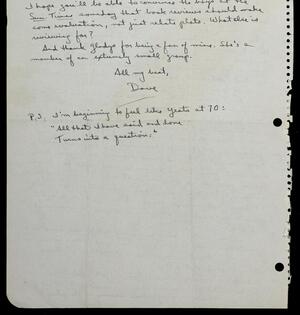 I hope you'll be able to convince the boys at the
Sun Times someday that book reviews should make
some evaluation, not just relate plots. What else is
reviewing for?
And thank Gladys for being a fan of mine. She's a
member of an extremely small group.
All my best,
Dave
P.S. I'm beginning to feel like Yeats at 70:
"All that I have said and done
Turns into a question."